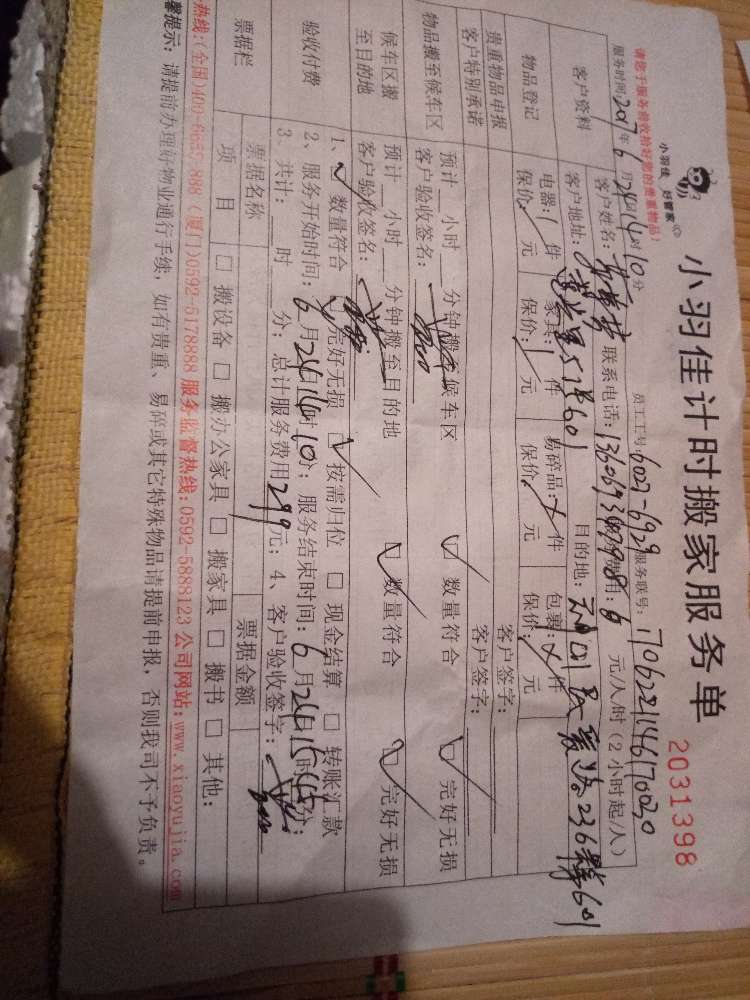 小羽佳 好管家
小羽佳计时搬家服务单
2031398
请您于服务前收拾好您的贵重物品!
员工工号:6027-6929 服务联号:
服务时间:2017年6月24日14时10分
客户资料
客户姓名: 联系电话: 费用: 元/人/时(2小时起/人)
客户地址:莲岳里51号601 目的地:
物品登记
电器:1件 家具:1件 易碎品: 件 包裹: 件
保价: 元 保价: 元 保价: 元 保价: 元
贵重物品申报 客户签字:
客户特别承诺 客户签字:
物品搬至候车区
预计 小时 分钟搬至候车区
客户验收签名: ☑ 数量符合 ☑ 完好无损
候车区搬至目的地
预计 小时 分钟搬至目的地
客户验收签名: ☑ 数量符合 ☑ 完好无损
验收付费
1、☑ 数量符合 ☑ 完好无损 ☑ 按需归位 □ 现金结算 □ 转账汇款
2、服务开始时间:6月24日14时10分;服务结束时间:6月24日15时45分;
3、共计: 时 分;总计服务费用299元;4、客户验收签字:
票据栏
票据名称 票据金额
项目 □ 搬设备 □ 搬办公家具 □ 搬家具 □ 搬书 □ 其他:
热线:(全国)400-6655-886 (厦门)0592-5178888 服务监督热线:0592-5888123 公司网站:www.xiaoyujia.com
馨提示:请提前办理好物业通行手续,如有贵重、易碎或其它特殊物品请提前申报,否则我司不予负责。